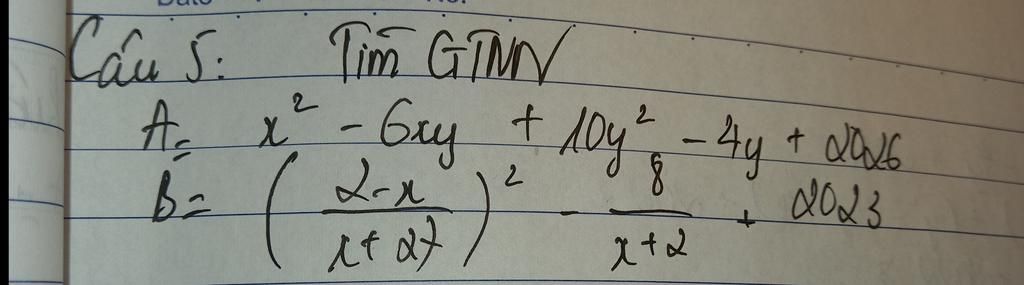 Câu 5: Tìm GTNN
A = x² - 6xy + 10y² - 4y + 2026
B = ((2-x)/(x+2))² - 8/(x+2) + 2023